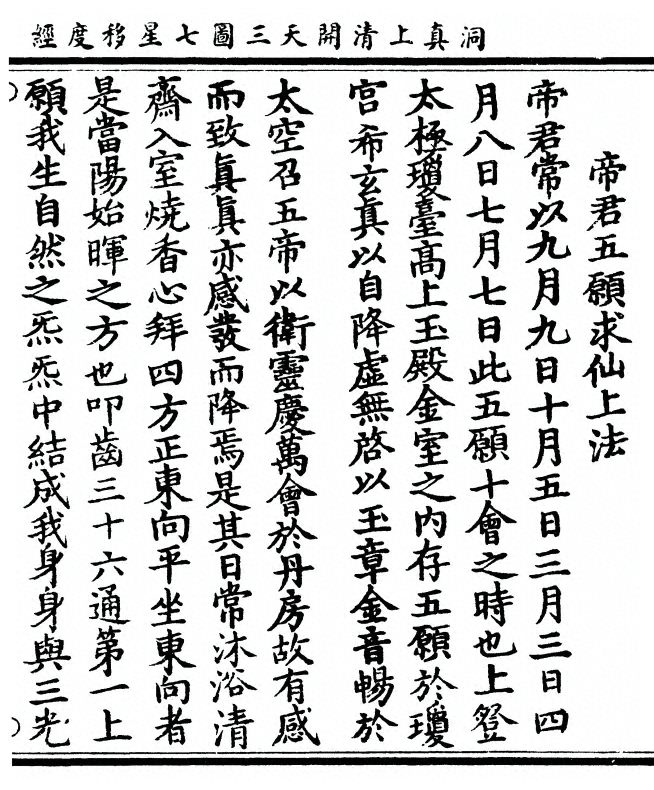 洞真上清開天三圖七星移度經
帝君五願求仙上法
帝君常以九月九日十月五日三月三日四
月八日七月七日此五願十會之時也上登
太極瓊臺高上玉殿金室之內存五願於瓊
宮希玄真以自降虛無啓以玉章金音暢於
太空召五帝以衛靈慶萬會於丹房故有感
而致眞眞亦感發而降焉是其日常沐浴清
齋入室燒香心拜四方正東向平坐東向者
是當陽始暉之方也叩齒三十六通第一上
願我生自然之炁炁中結成我身身與三光